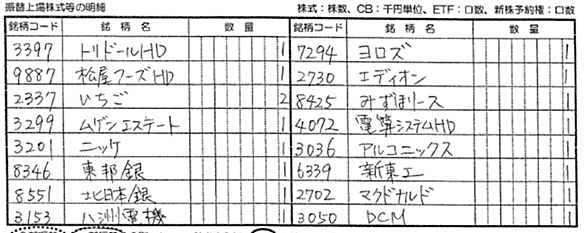 振替上場株式等の明細 株式：株数、CB：千円単位、ETF：口数、新株予約権：口数
銘柄コード 銘柄名 数量 銘柄コード 銘柄名 数量
3397 トリドールHD 1 7294 ヨロズ 1
9887 松屋フーズHD 1 2730 エディオン 1
2337 いちご 2 8425 みずほリース 1
3299 ムゲンエステート 1 4072 電算システムHD 1
3201 ニッケ 1 3036 アルコニックス 1
8346 東邦銀 1 6339 新東工 1
8551 北日本銀 1 2702 マクドナルド 1
3153 八洲電機 1 3050 DCM 1